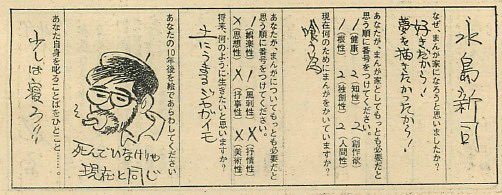 永島新司
なぜ、まんが家になろうと思いましたか？
好きだから！
夢を描きたかったから！
あなたが、まんが家としてもっとも必要だと
思う順に番号をつけてください。
1（健康） 2（知性） 1（創作欲）
1（根性） 2（独創性） 2（人間性）
現在何のためにまんがをかいていますか？
喰う為
あなたが、まんがについてもっとも必要だと
思う順に番号をつけてください。
X（娯楽性） 1（風刺性） X（抒情性）
X（思想性） X（抒事性） X（美術性）
将来、何のように生きたいと思いますか？
土にうまるジャガイモ
あなたの10年後を絵であらわしてください
死んでいなければ
現在と同じ
あなた自身を叱ることばをひとこと……。
少しは寝ろ!!